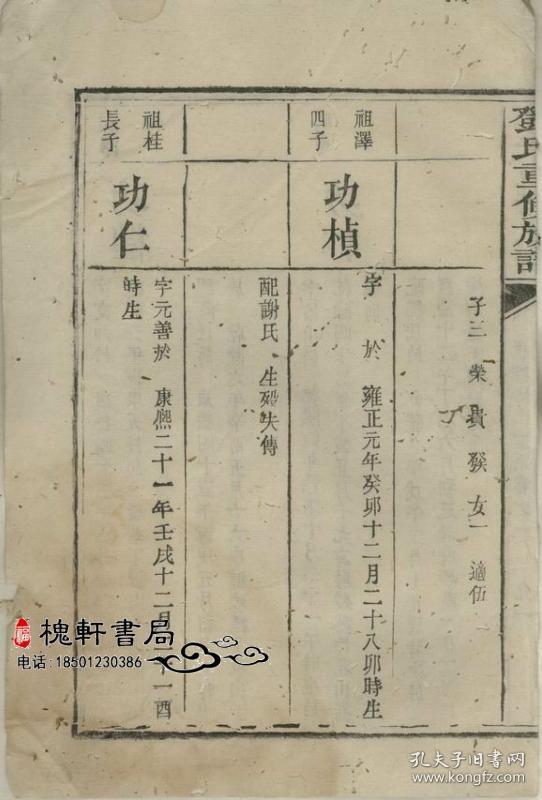 鄧氏重修族譜
子三 榮 貴 發 女一 適伍
祖澤
四子
功楨
字 於 雍正元年癸卯十二月二十八卯時生
配謝氏 生殁失傳
祖桂
長子
功仁
字元善於 康熙二十一年壬戌十二月二十一酉
時生
槐軒書局
电话:18501230386
孔夫子旧书网
www.kongfz.com